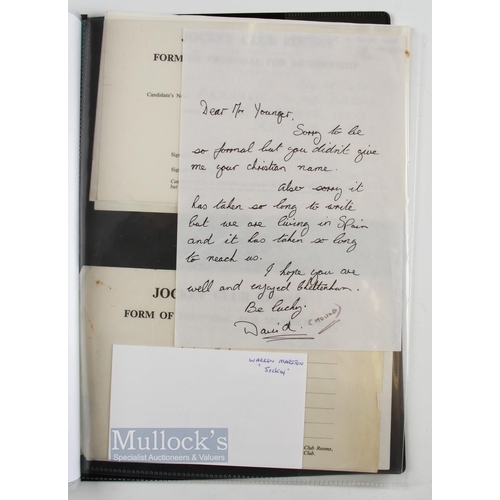 FORM
Candidate's N
Sig
Sig
Dear Mr Younger,
Sorry to be
so formal but you didn't give
me your christian name.
Also sorry it
has taken so long to write
but we are living in Spain
and it has taken so long
to reach us.
I hope you are
well and enjoyed Cheltenham.
Be lucky.
David.
JOC
FORM OF
WARREN MARSTON
"JOCKEY"
Club Rooms,
Club.
Mullock's
Specialist Auctioneers & Valuers